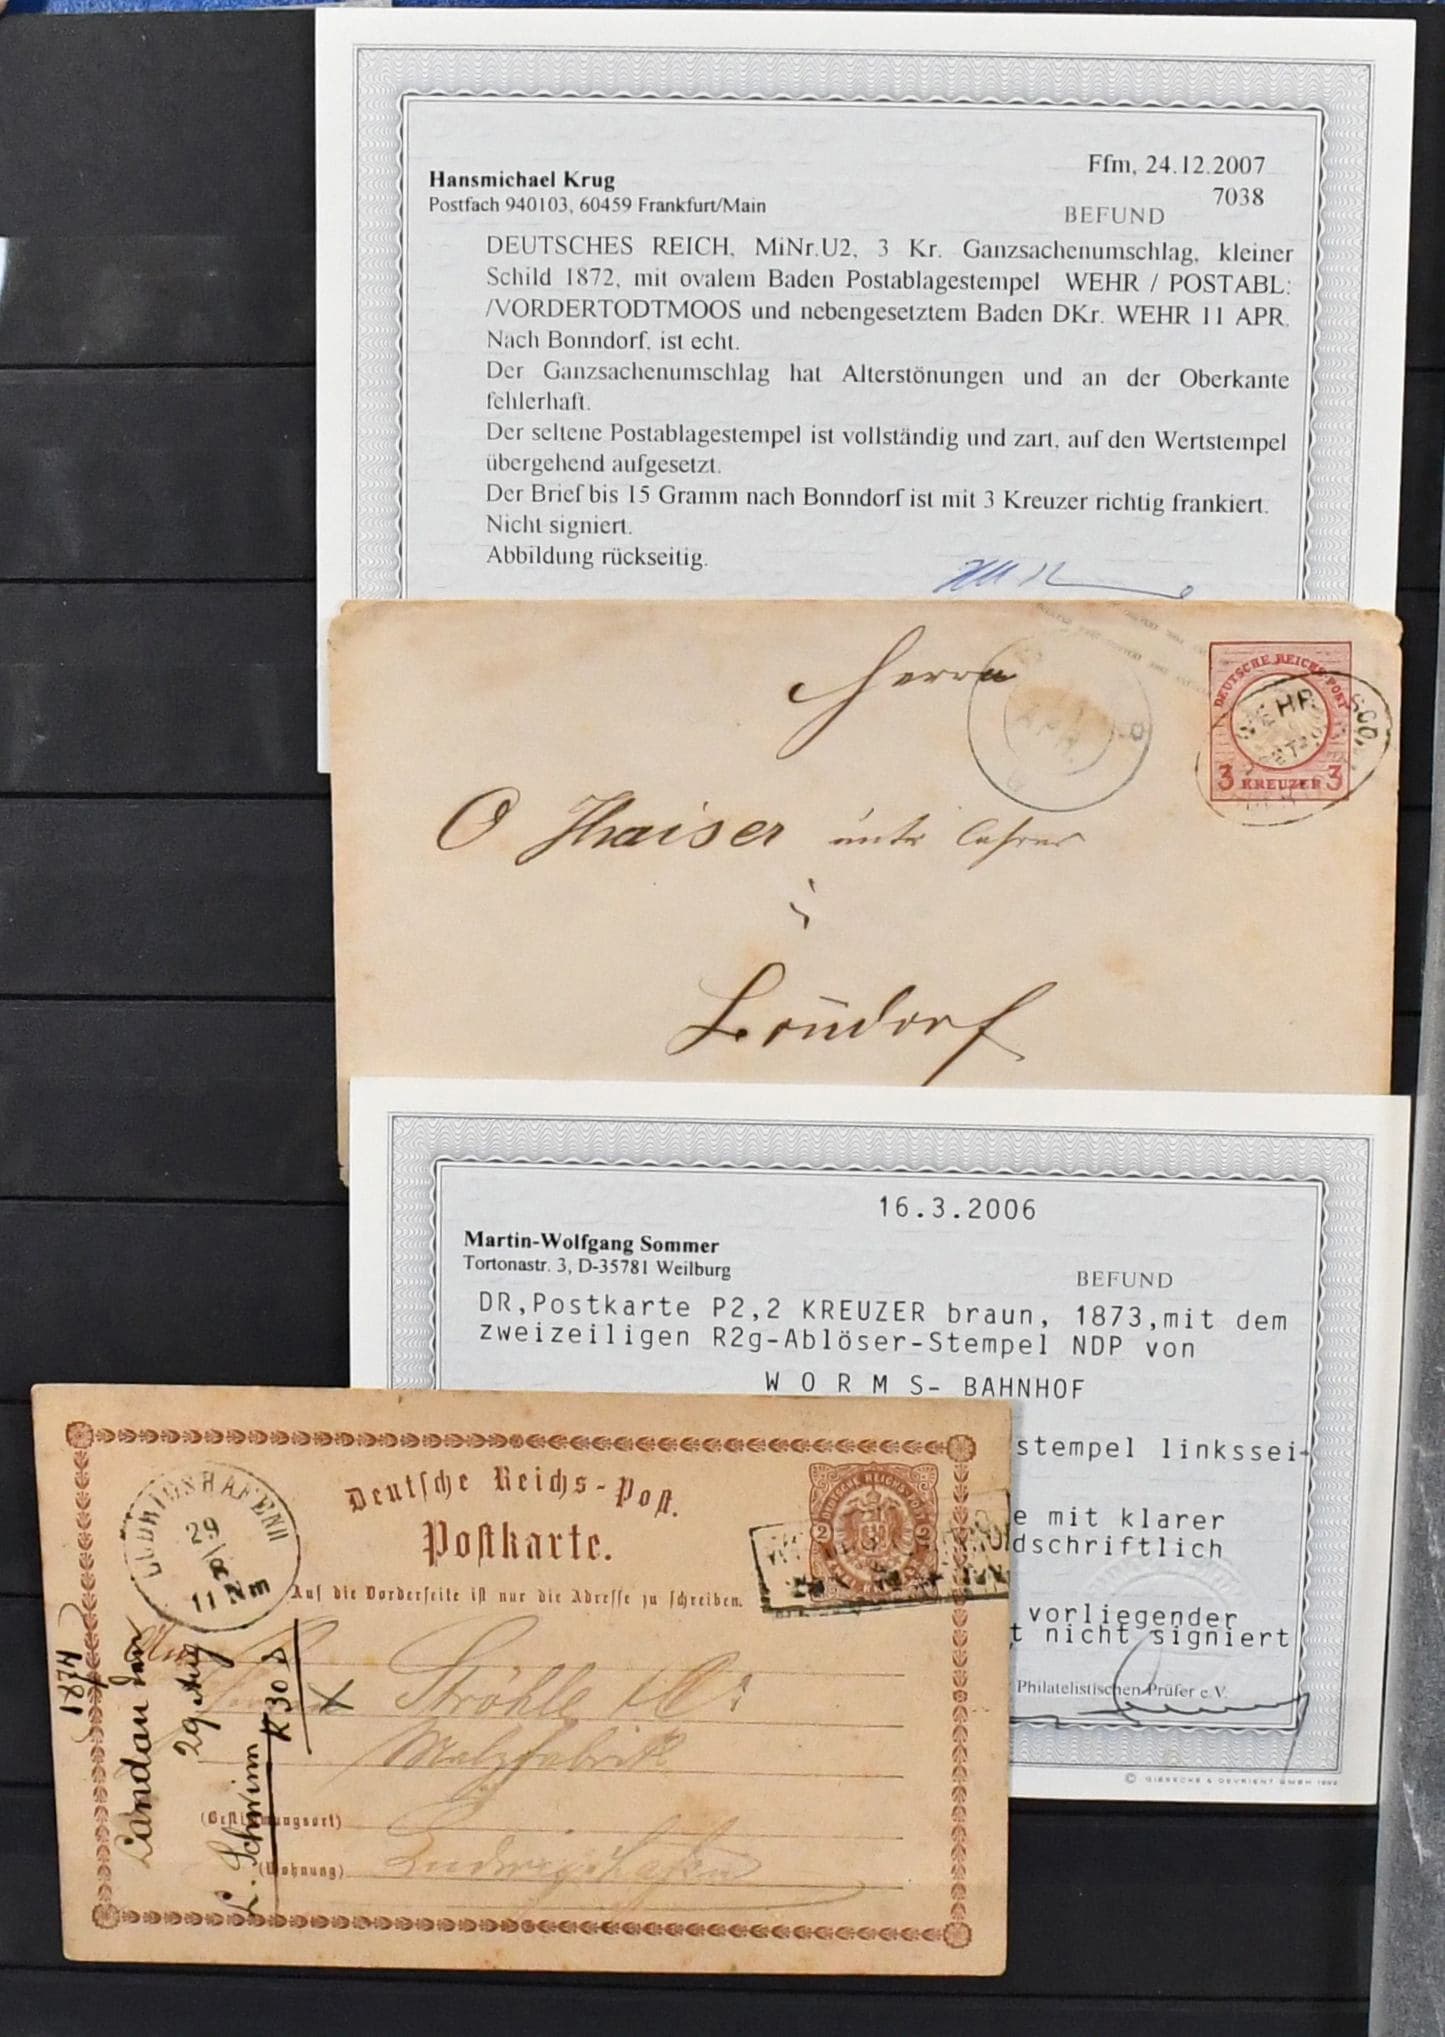 Ffm, 24.12.2007
Hansmichael Krug
7038
Postfach 940103, 60459 Frankfurt/Main
BEFUND
DEUTSCHES REICH, MiNr.U2, 3 Kr. Ganzsachenumschlag, kleiner
Schild 1872, mit ovalem Baden Postablagestempel WEHR / POSTABL:
/VORDERTODTMOOS und nebengesetztem Baden DKr. WEHR 11 APR.
Nach Bonndorf, ist echt.
Der Ganzsachenumschlag hat Alterstönungen und an der Oberkante
fehlerhaft.
Der seltene Postablagestempel ist vollständig und zart, auf den Wertstempel
übergehend aufgesetzt.
Der Brief bis 15 Gramm nach Bonndorf ist mit 3 Kreuzer richtig frankiert.
Nicht signiert.
Abbildung rückseitig.
Herrn
APR.
DEUTSCHE REICHS-POST
3 KREUZER 3
O Thaiser
Bon̄dorf
16.3.2006
Martin-Wolfgang Sommer
Tortonastr. 3, D-35781 Weilburg
BEFUND
DR,Postkarte P2,2 KREUZER braun, 1873,mit dem
zweizeiligen R2g-Ablöser-Stempel NDP von
W O R M S- BAHNHOF
stempel linkssei-
e mit klarer
dschriftlich
vorliegender
t nicht signiert
Philatelistischen Prüfer e.V.
© GIESECKE & DEVRIENT GMBH 1992
Deutsche Reichs-Post.
Postkarte.
Auf die Vorderseite ist nur die Adresse zu schreiben.
DEUTSCHE REICHSPOST
2 2
LUDWIGSHAFEN
29
8
11
1874
Landau den
29 Aug
L. Schwinn
K 30
Ströhle & Cie
Malzfabrik
(Bestimmungsort)
(Wohnung)
Ludwigshafen